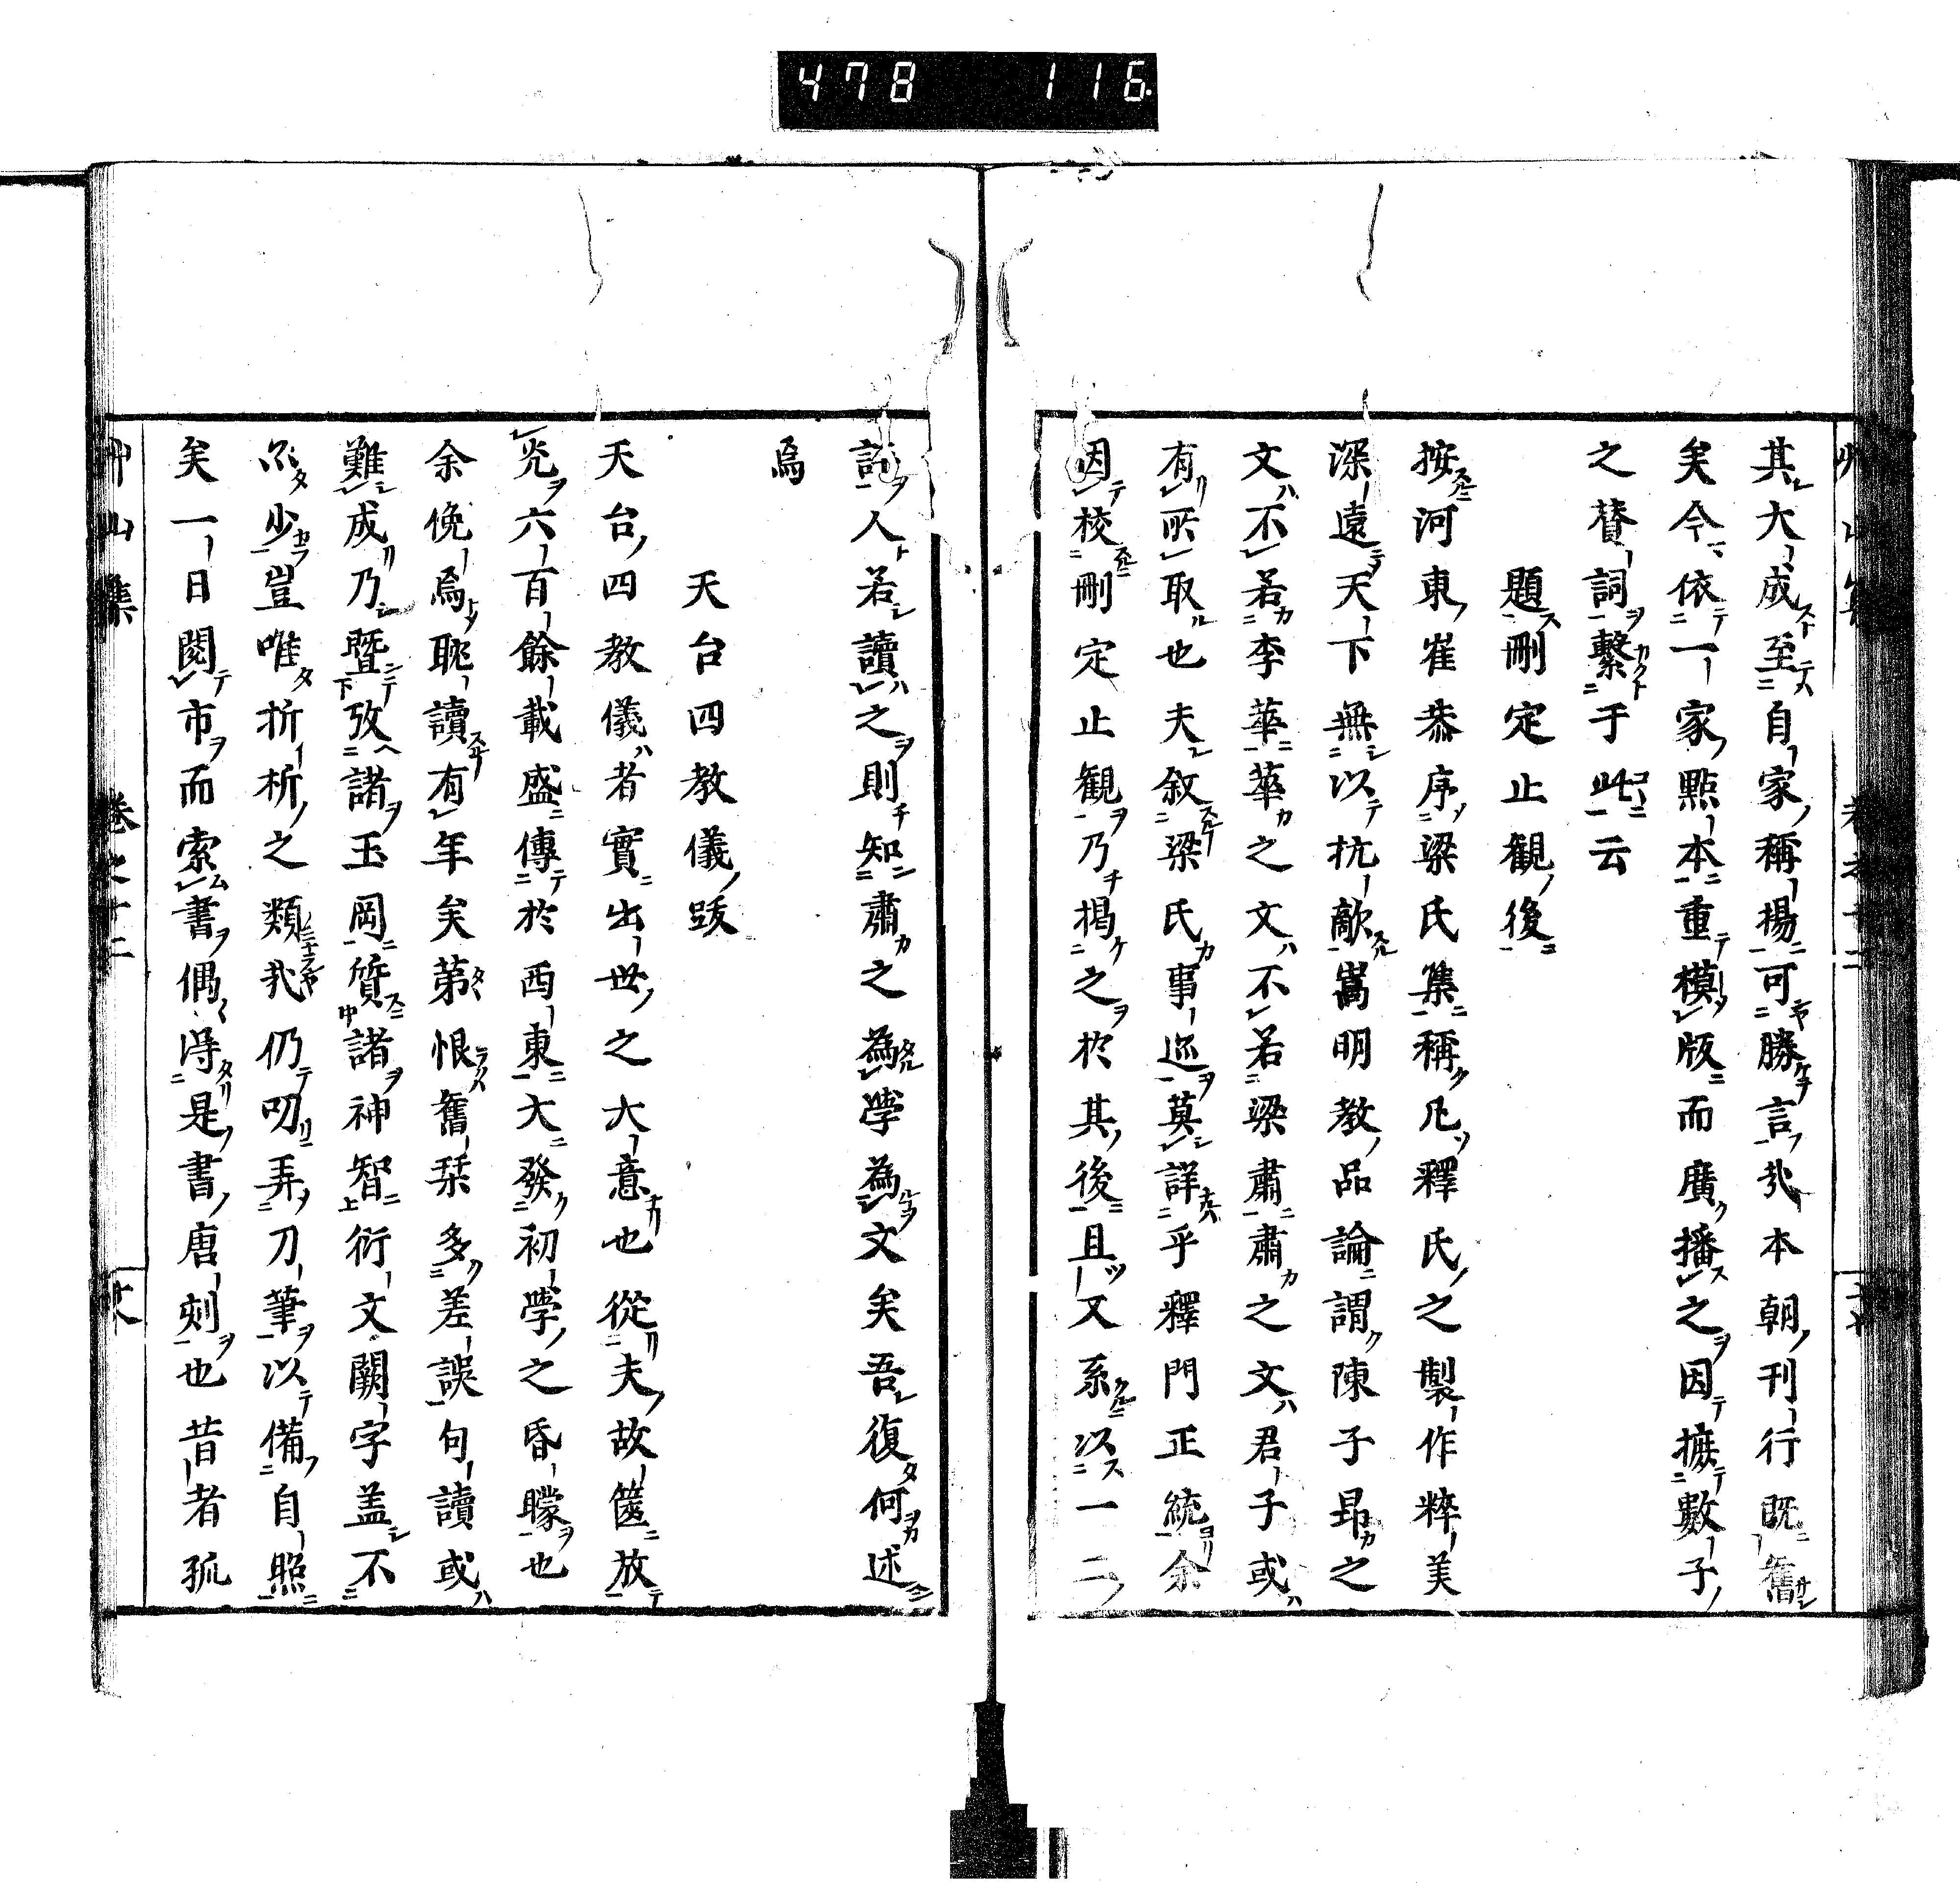 478 116
其大成至自家稱揚可勝言哉本朝刊行既舊
矣今依一家點本重模版而廣播之因摭數子
之賛詞繫于此云
題刪定止観後
按河東崔恭序梁氏集稱凡釋氏之製作粹美
深遠天下無以抗敵嵩明教品論謂陳子昻之
文不若李華華之文不若梁肅肅之文君子或
有所取也夫敘梁氏事迹莫詳乎釋門正統余
因校刪定止観乃揭之於其後且又系以一二
人若讀之則知肅之為學為文矣吾復何述
焉
天台四教儀跋
天台四教儀者實出世之大意也從夫故篋放
光六百餘載盛傳於西東大發初學之昏矇也
余俛焉耽讀有年矣第恨舊栞多差誤句讀或
難成乃曁攷諸玉岡質諸神智衍文闕字盖不
尠少豈唯折析之類哉仍叨弄刀筆以備自照
矣一日閲市而索書偶得是書唐刻也昔者孤
艸山集 卷之十二